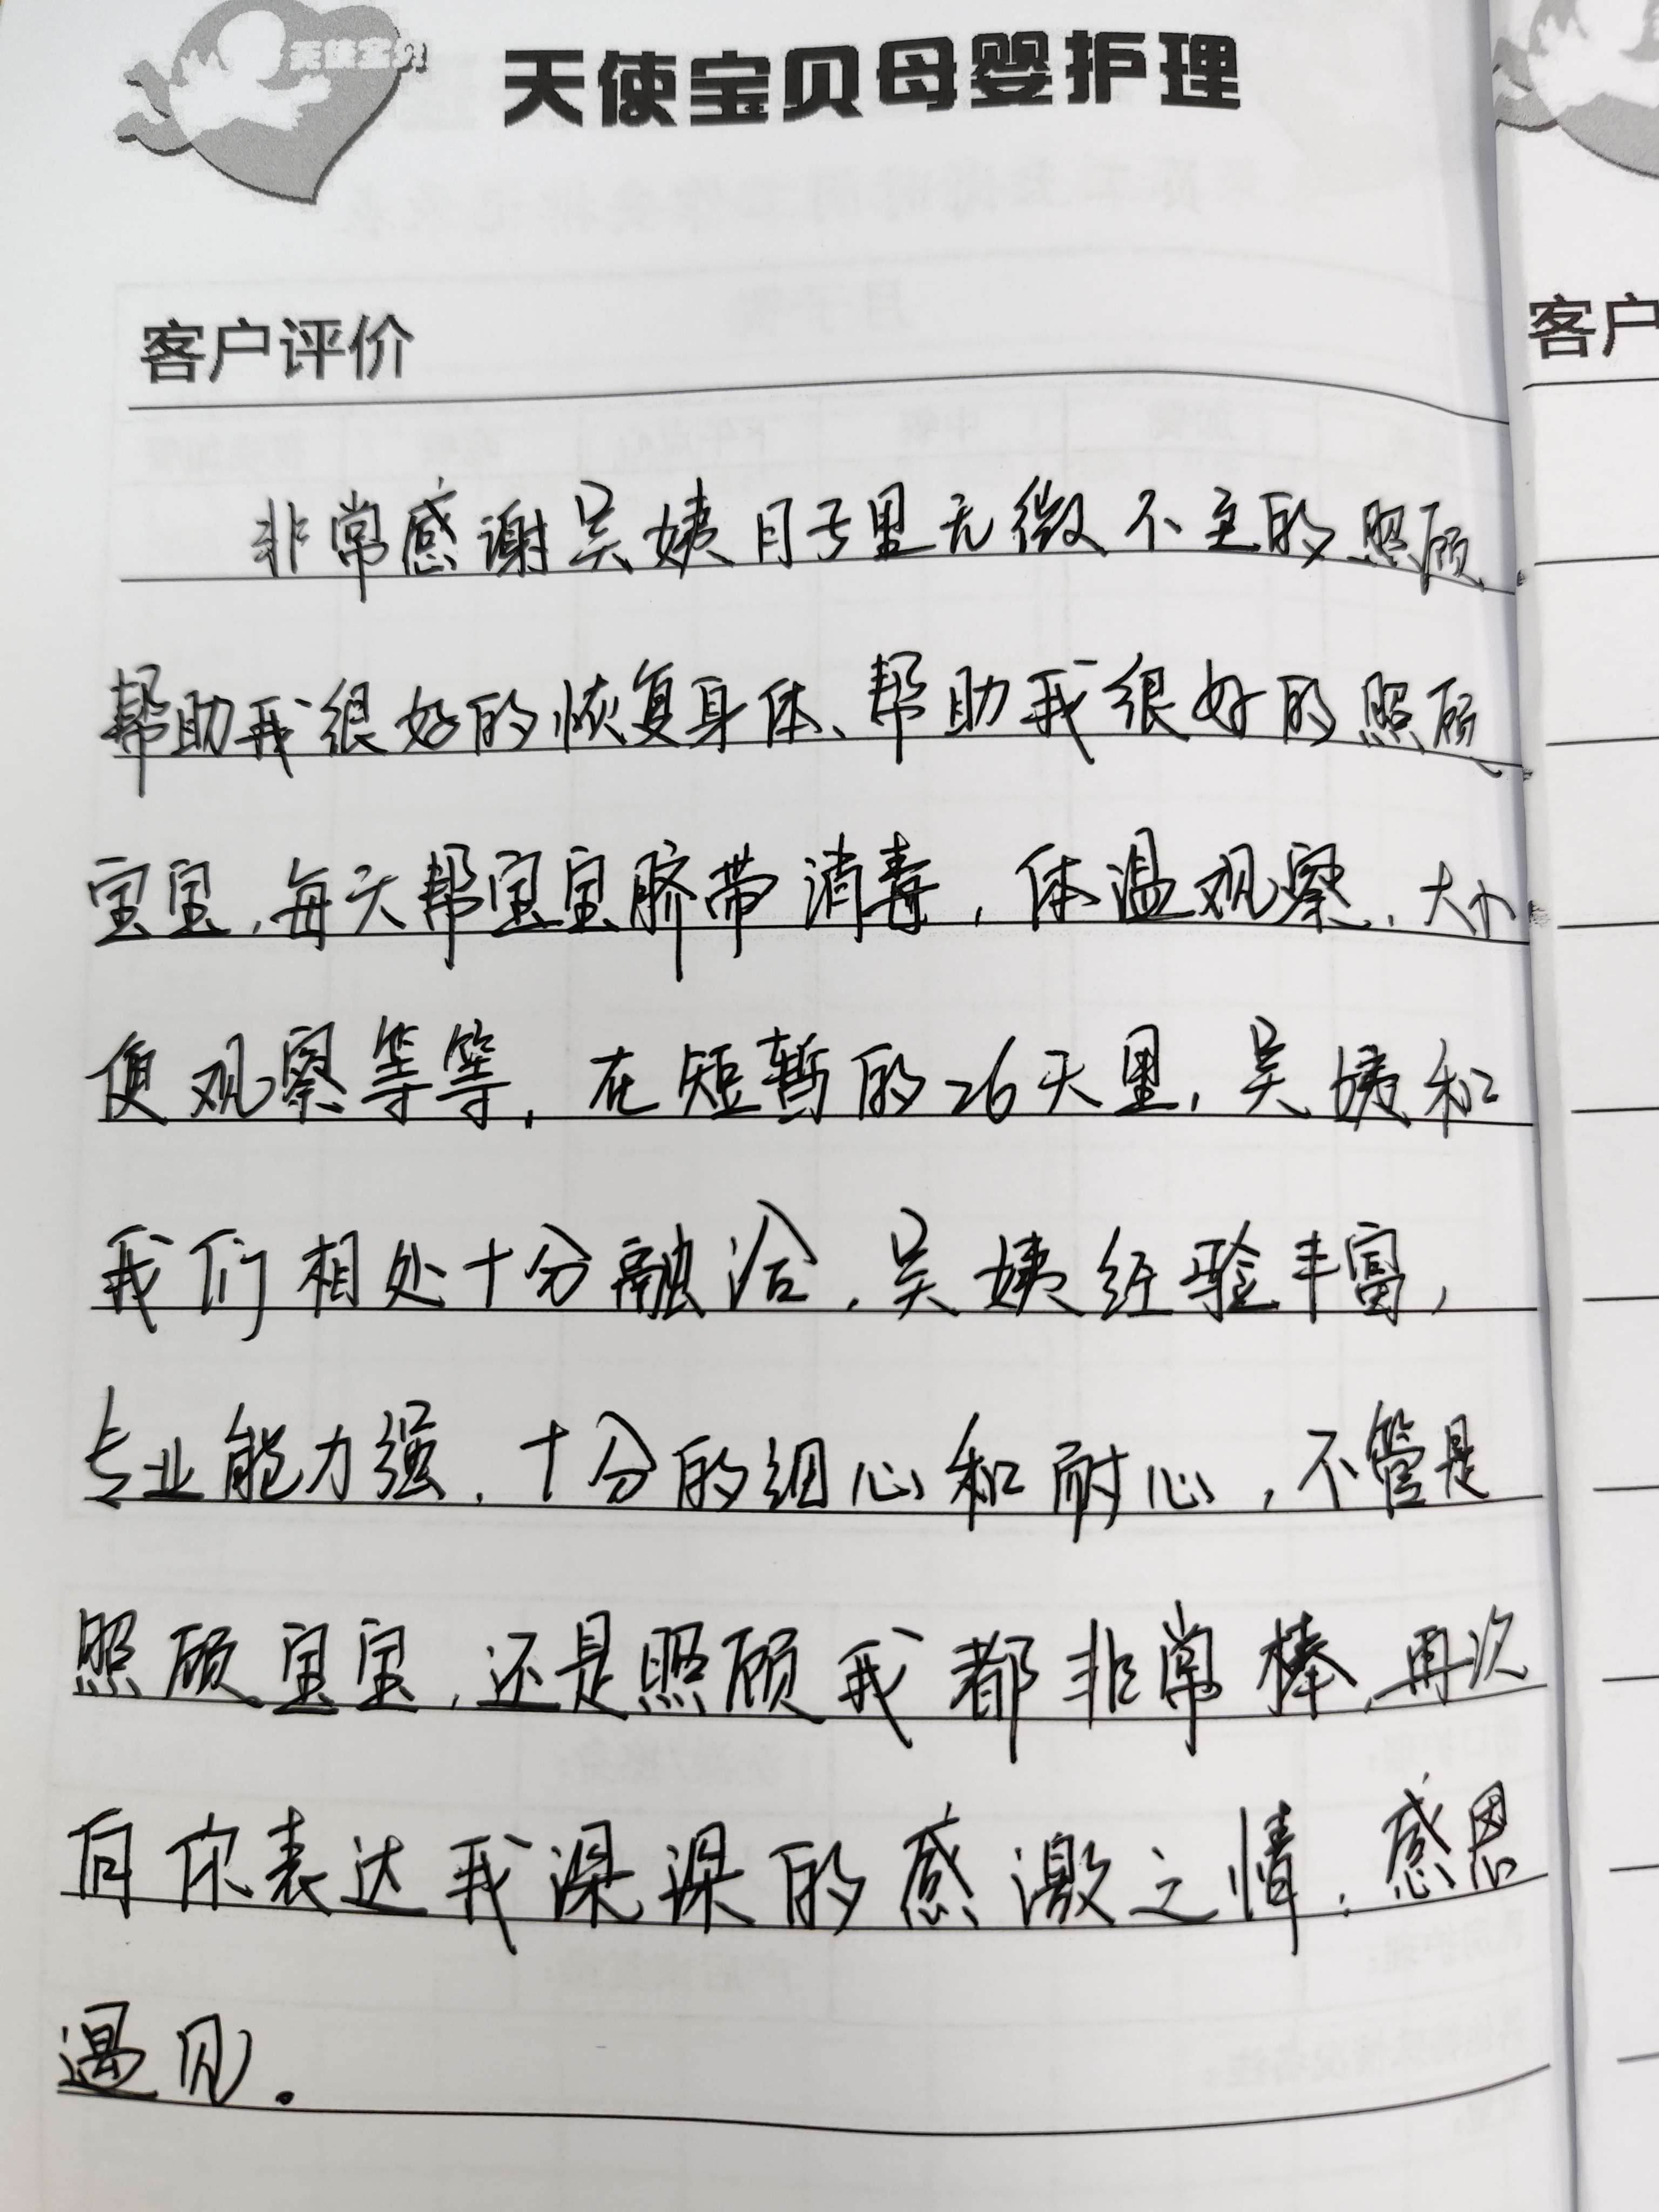 天使宝贝
天使宝贝母婴护理
客户评价
客户
非常感谢吴姨月子里无微不至的照顾,
帮助我很好的恢复身体、帮助我很好的照顾
宝宝,每天帮宝宝脐带消毒,体温观察,大小
便观察等等,在短暂的26天里,吴姨和
我们相处十分融洽,吴姨经验丰富,
专业能力强,十分的细心和耐心,不管是
照顾宝宝,还是照顾我都非常棒,再次
向你表达我深深的感激之情,感恩
遇见。